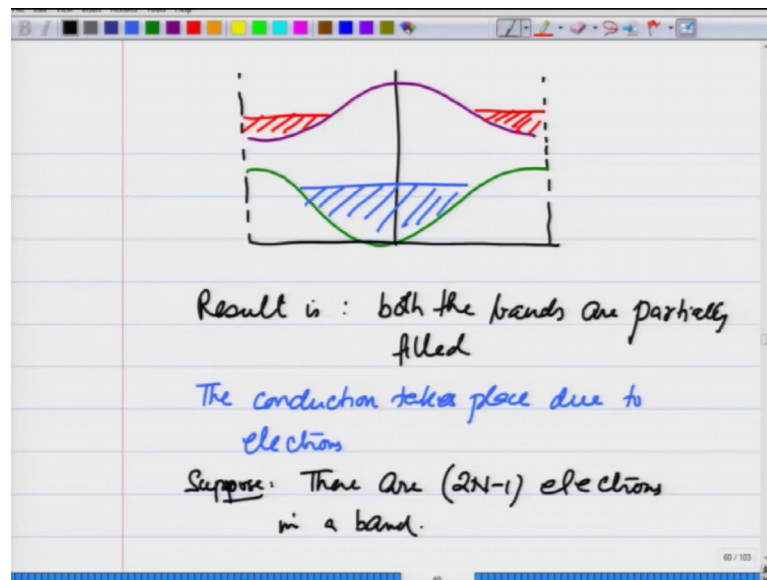 Result is : both the bands are partially
filled
The conduction takes place due to
electrons
Suppose: There are (2N-1) electrons
in a band.
60 / 103